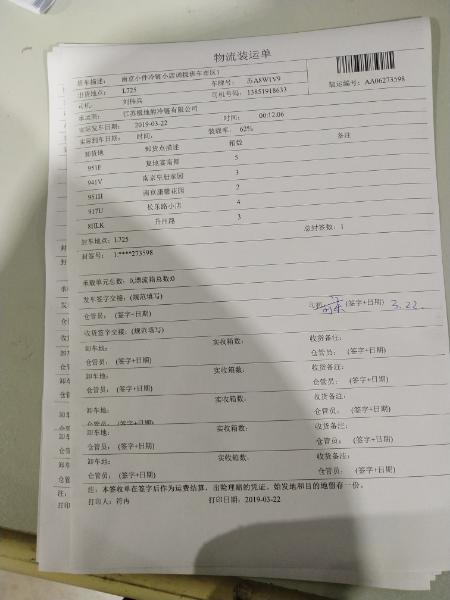 物流装运单
班车描述: 南京小件冷链小店调拨班车市区1
装运编号: AA06273598
出货地点: L725 车牌号: 苏A8W1V9
司机: 司机号码: 13851918633
承运商: 江苏极地熊冷链有限公司
实际发车日期: 2019-03-22 时间: 00:12:06
实际到车日期: 时间: 装载率: 62%
卸货地 卸货点描述 箱数 备注
951F 复地宴南都 5
941V 3
951H 2
917U 长乐路小店 4
升州路 3
封车地点: L725 总封签数: 1
封签号: 1:****273598
承载单元总数: 0,漂流箱总数:0
发车签字交接: (规范填写)
仓管员: (签字+日期) 司机: (签字+日期) 3.22.
收货签字交接: (规范填写)
卸车地: 实收箱数: 收货备注:
仓管员: (签字+日期) 仓管员: (签字+日期)
卸车地: 实收箱数: 收货备注:
仓管员: (签字+日期) 仓管员: (签字+日期)
卸车地: 实收箱数: 收货备注:
仓管员: (签字+日期) 仓管员: (签字+日期)
卸车地: 实收箱数: 收货备注:
仓管员: (签字+日期) 仓管员: (签字+日期)
卸车地: 实收箱数: 收货备注:
仓管员: (签字+日期) 仓管员: (签字+日期)
注: 本签收单在签字后作为运费结算、出险理赔的凭证。始发地和目的地留存一份。
打印人: 符冉 打印日期: 2019-03-22